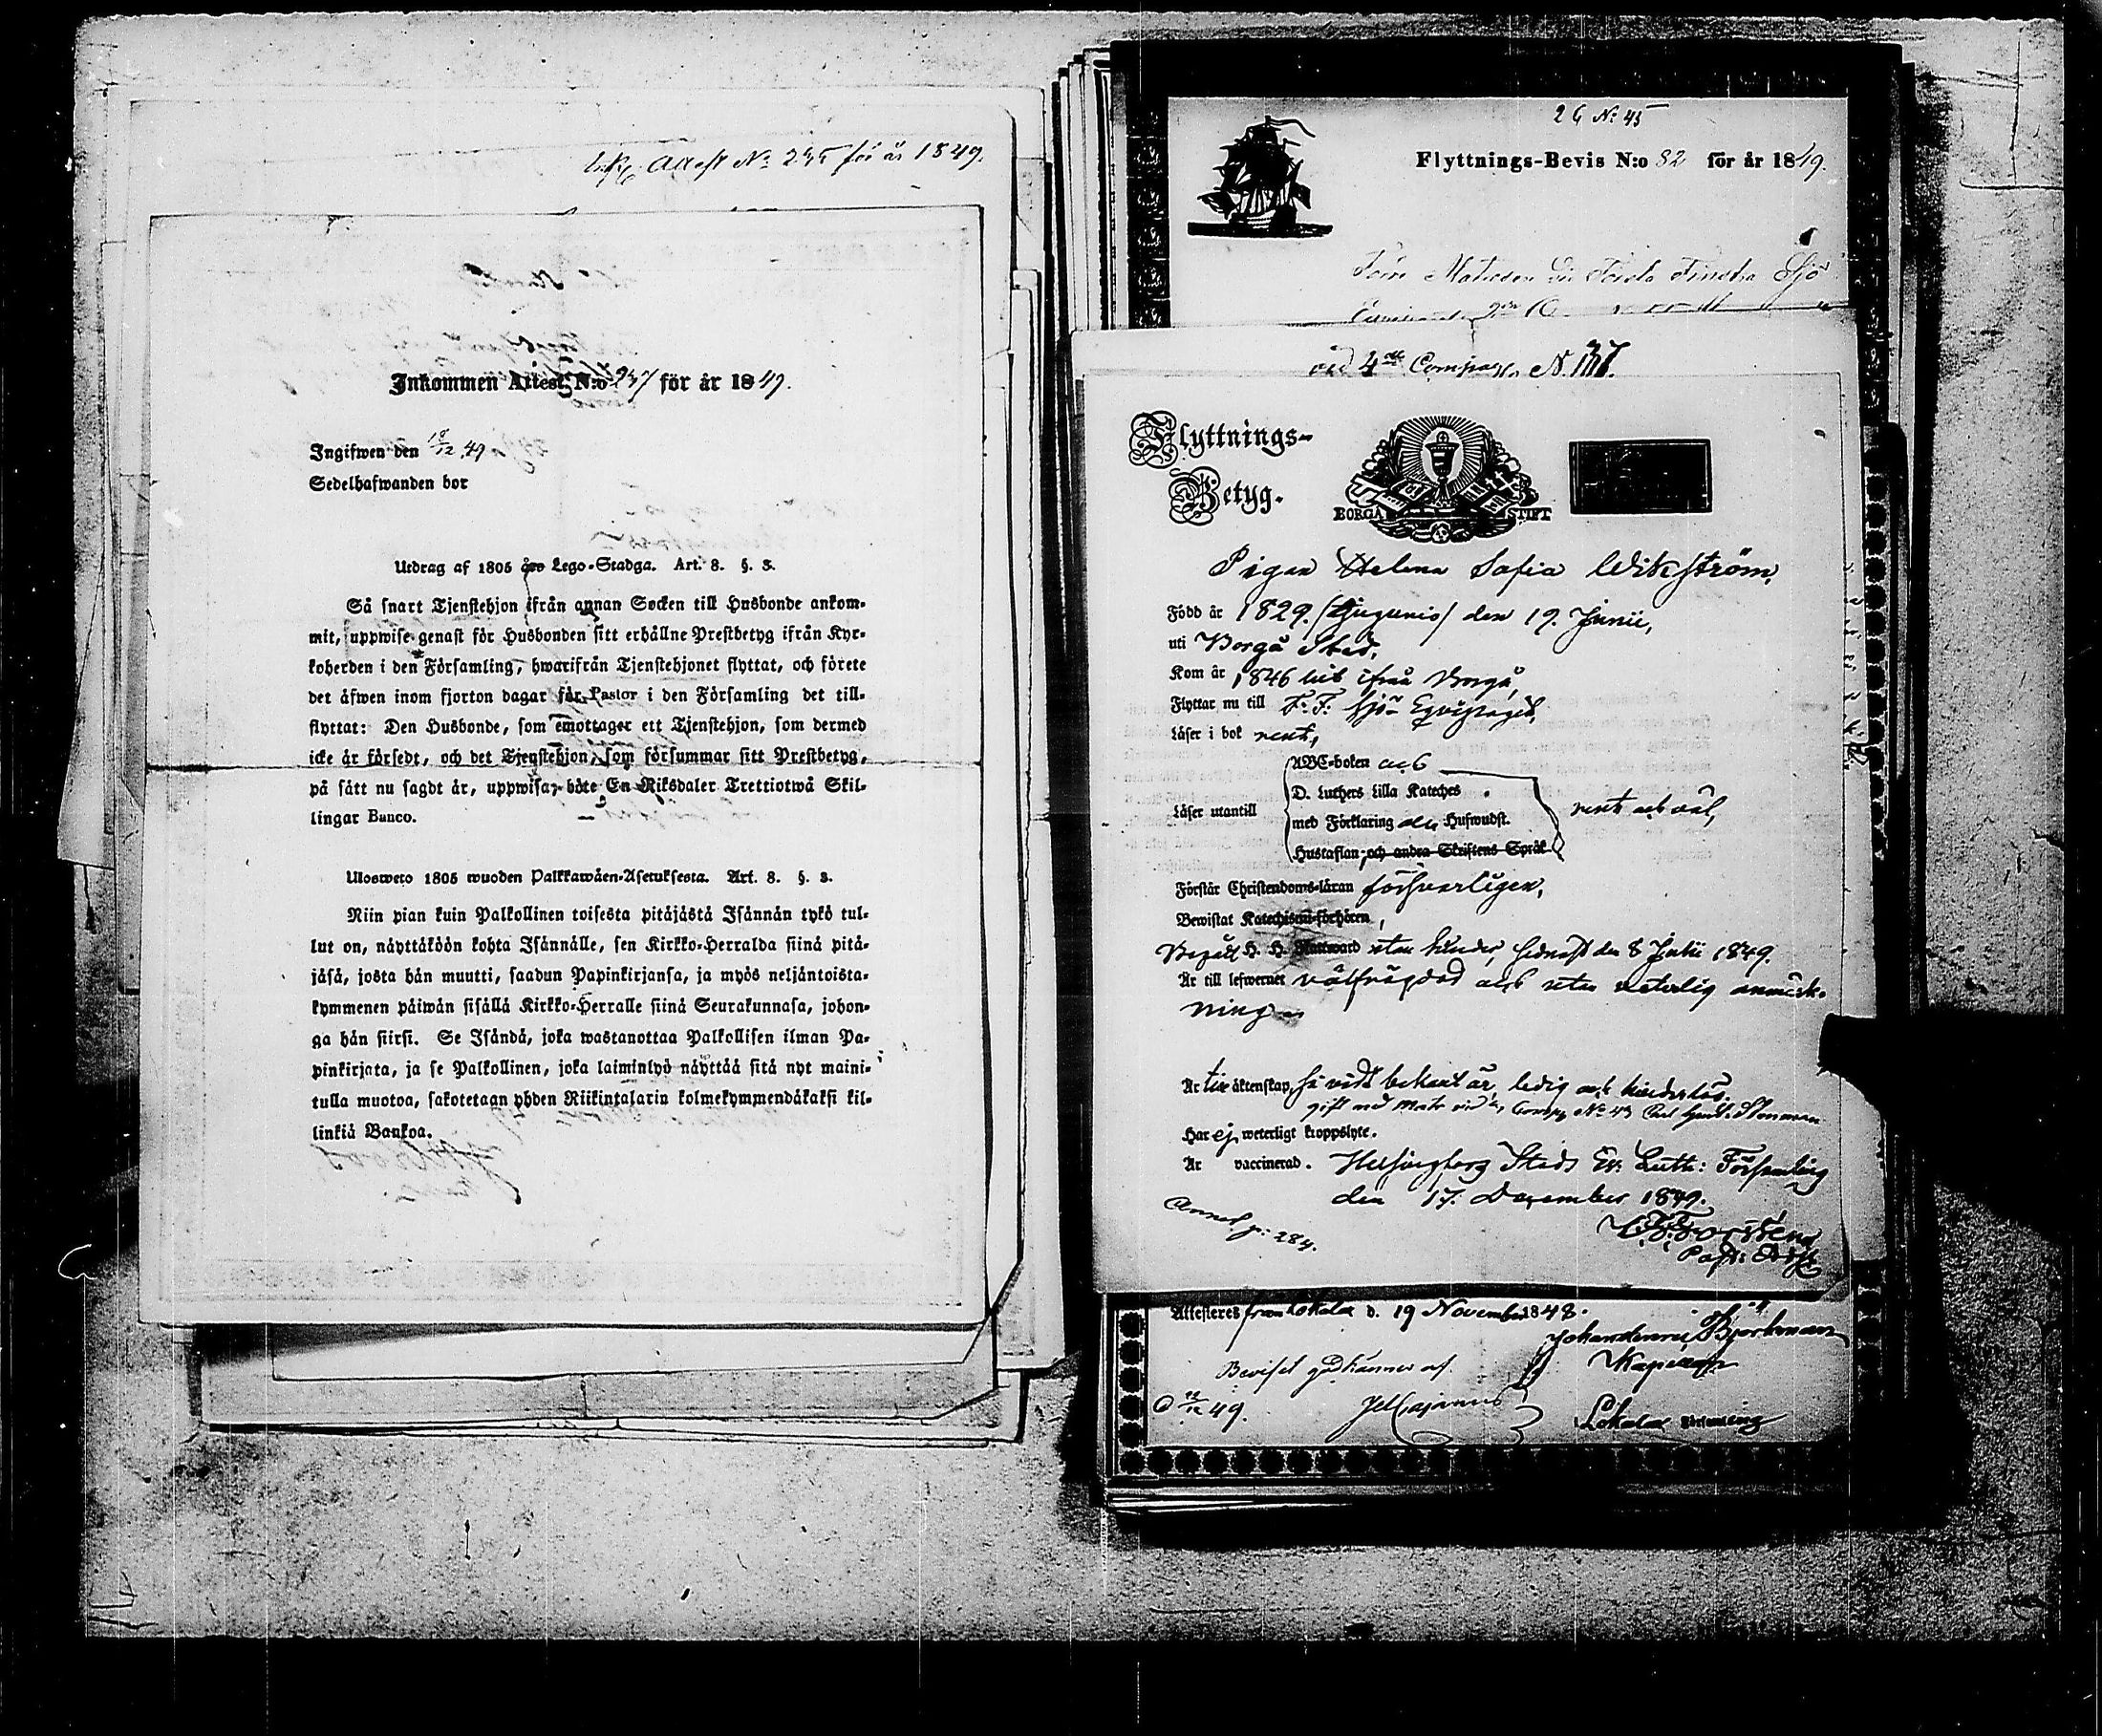 Attest No 235 för år 1849.
Inkommen Attest N:o 237 för år 1849.
Ingifwen den 18/12 49
Sedelhafwanden bor
Utdrag af 1805 års Lego-Stadga. Art. 8. §. 3.
Så snart Tjenstehjon ifrån annan Socken till Husbonde ankom-
mit, uppwise genast för Husbonden sitt erhållne Prestbetyg ifrån Kyr-
koherden i den Församling, hwarifrån Tjenstehjonet flyttat, och förete
det äfwen inom fjorton dagar för Pastor i den Församling det till-
flyttat: Den Husbonde, som emottager ett Tjenstehjon, som dermed
icke är försedt, och det Tjenstehjon, som försummar sitt Prestbetyg,
på sätt nu sagdt är, uppwisa, böte En Riksdaler Trettiotwå Skil-
lingar Banco.
Ulosweto 1805 wuoden Palkkawäen-Asetuksesta. Art. 8. §. 3.
Niin pian kuin Palkollinen toisesta pitäjästä Isännän tykö tul-
lut on, näyttäköön kohta Isännälle, sen Kirkko-Herralda siinä pitä-
jäsä, josta hän muutti, saadun Papinkirjansa, ja myös neljäntoista-
kymmenen päiwän sisällä Kirkko-Herralle siinä Seurakunnasa, johon-
ga hän siirsi. Se Isändä, joka wastanottaa Palkollisen ilman Pa-
pinkirjata, ja se Palkollinen, joka laiminlyö näyttää sitä nyt maini-
tulla muotoa, sakotetaan yhden Riikintalarin kolmekymmendäkaksi kil-
linkiä Bankoa.
26 No 45
Flyttnings-Bevis N:o 82 för år 1849.
Första Finska Sjö
vid 4de Compag. N. 137.
Flyttnings-
Betyg.
BORGÅ STIFT
Pigan Helena Sofia Wikström,
Född år 1829. (tjugunio) den 19. Junii,
uti Borgå Stad,
Kom år 1846 hit ifrån Borgå,
Flyttar nu till F. F. Sjö Eqvipaget,
Läser i bok rent,
ABC-boken och
D. Luthers Lilla Kateches
med Förklaring och Hufwudst.
Läser utantill
rent och väl,
Hustaflan, och andra Skriftens Språk
Förstår Christendoms-läran försvarligen,
Bewistat Katechismi-förhören,
Begått H. H. Nattward utan hinder, sednast den 8 Julii 1849.
Är till lefwernet välfrägdad och utan veterlig anmärk-
ning
Är till äktenskap, så vidt bekant är, ledig och hinderslös.
gift med Matr. vid Comp. No 43 Carl Gust. Stenman
Har ej weterligt kroppslyte.
Är vaccinerad. Helsingborg Stads Ev. Luth: Församling
den 17. December 1849.
Annot. p: 284.
Attesteres från Lokala d. 19 November 1848.
Björkman
Beviset godkännes af
Lokala Församling